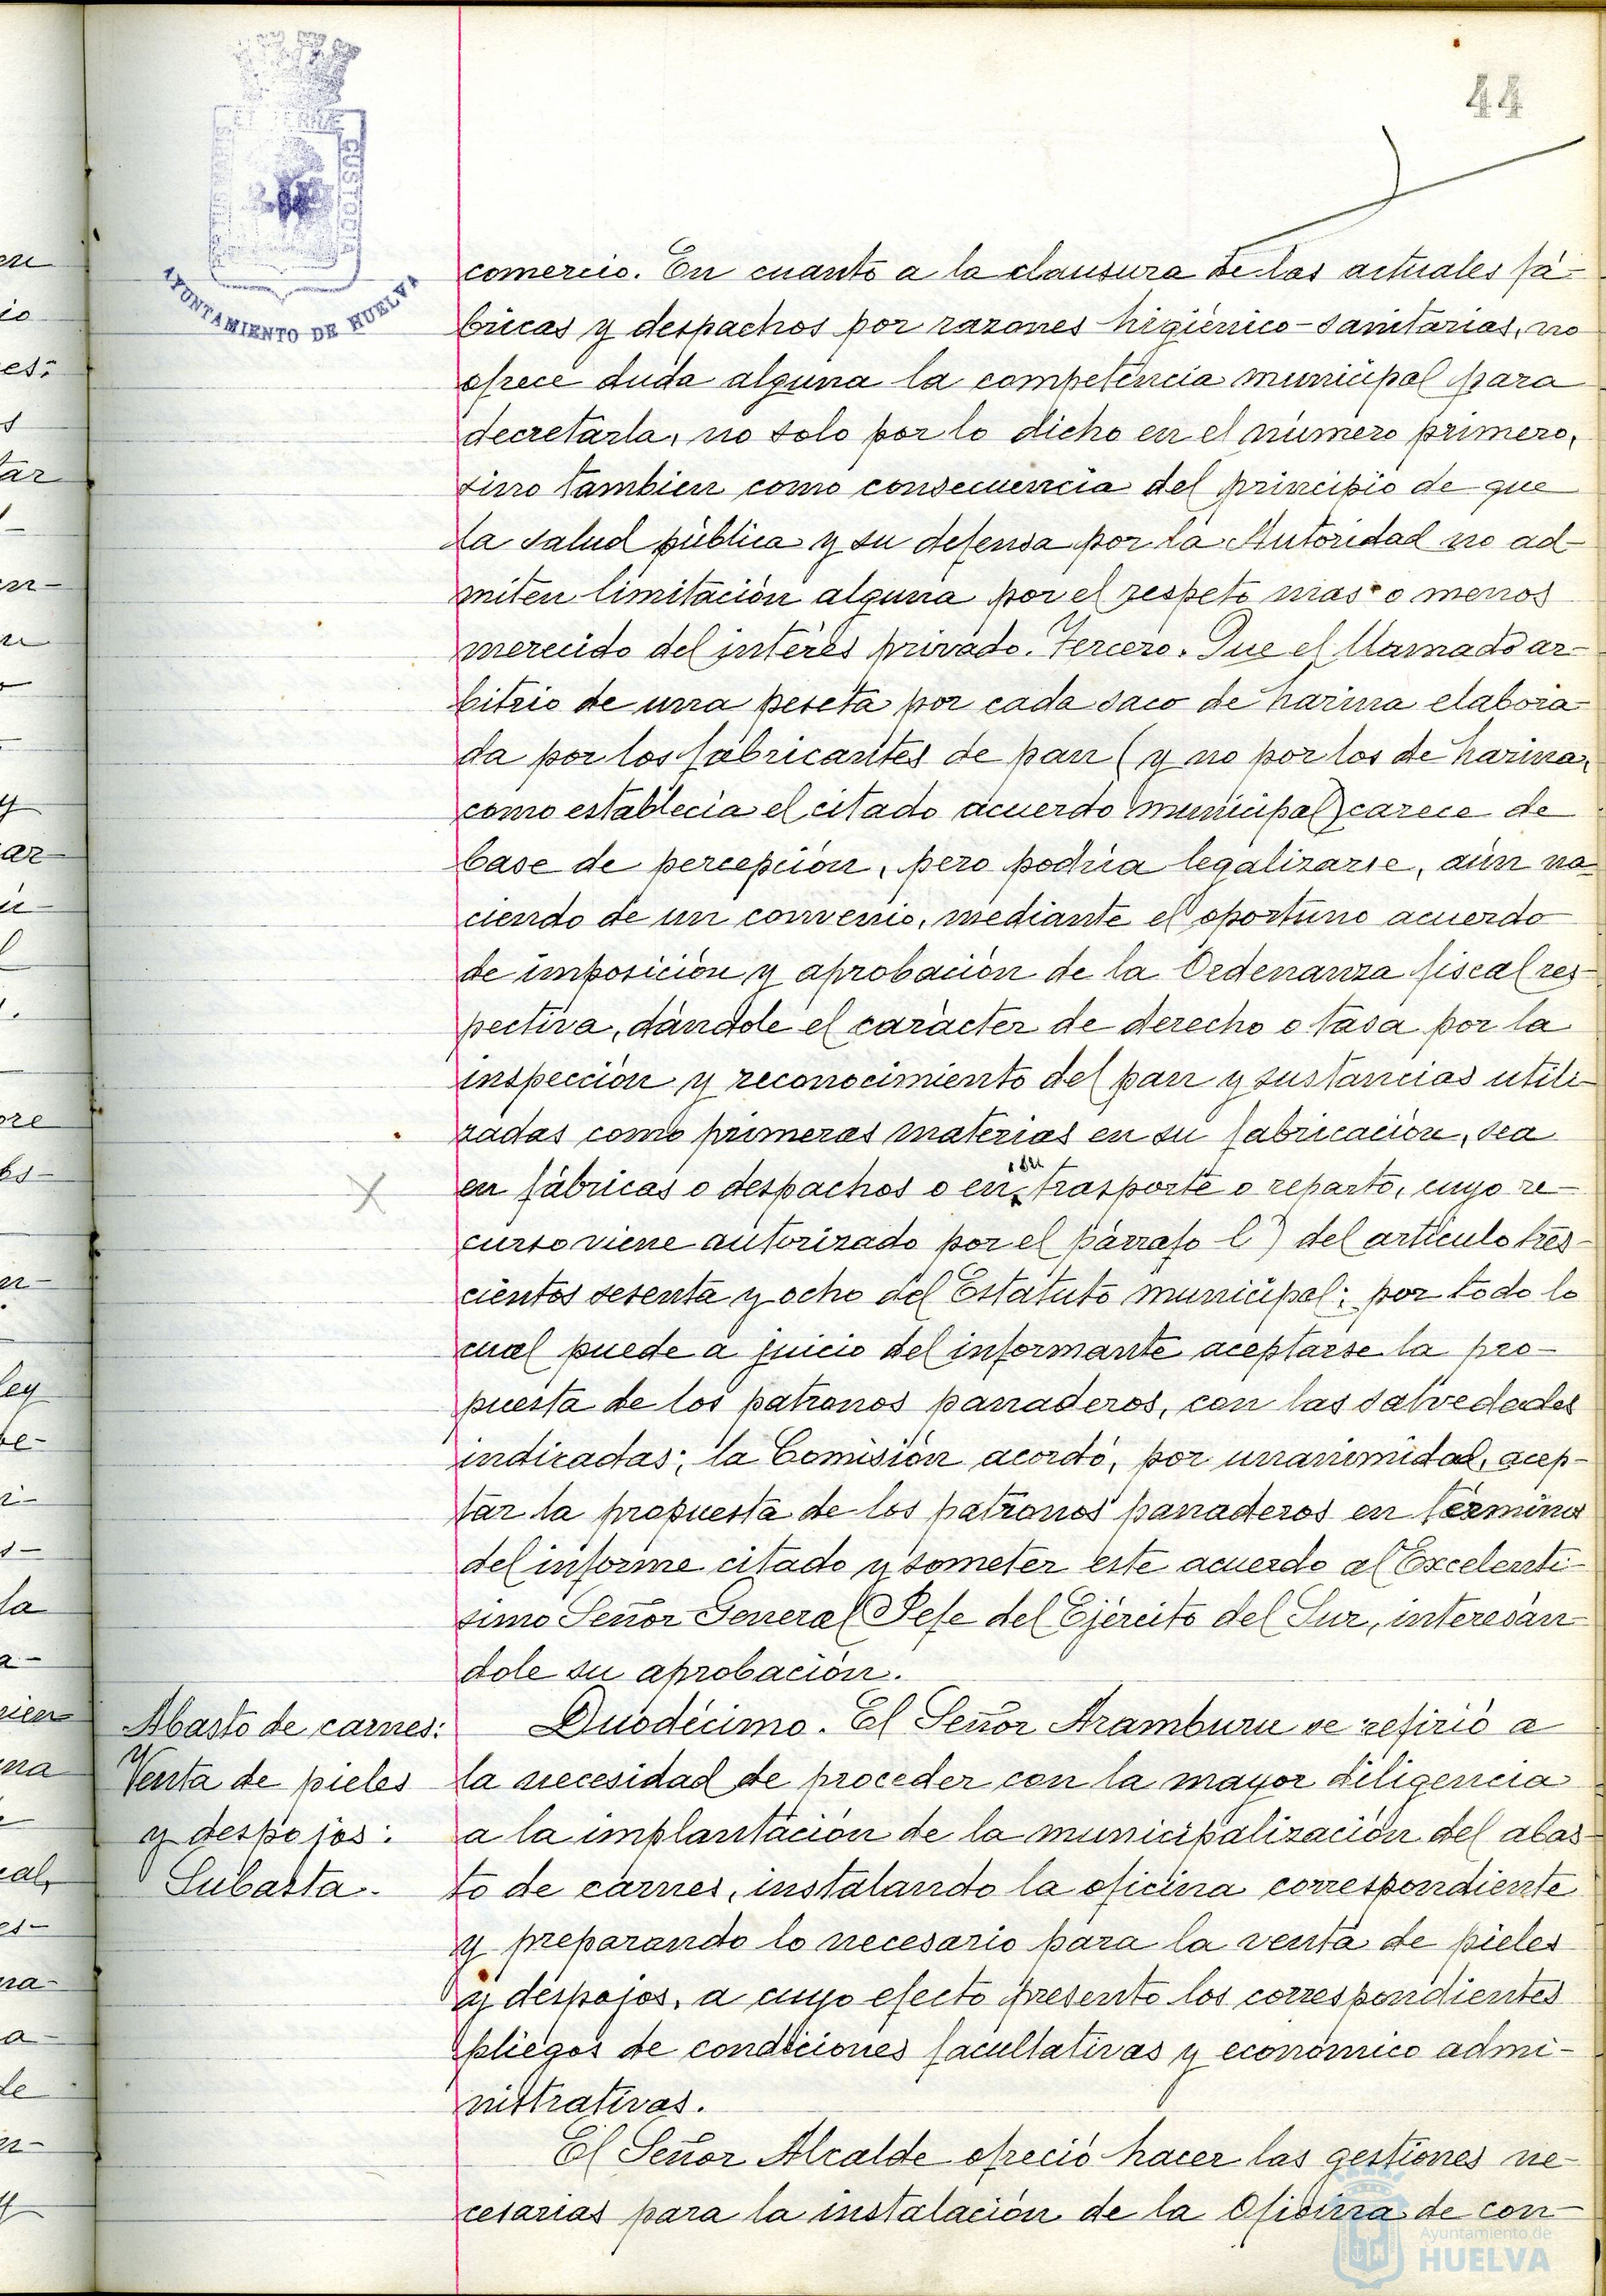 44
CUSTODIA
AYUNTAMIENTO DE HUELVA
comercio. En cuanto a la clausura de las actuales fá-
bricas y despachos por razones higiénico-sanitarias, no
ofrece duda alguna la competencia municipal para
decretarla, no solo por lo dicho en el número primero,
sino tambien como consecuencia del principio de que
la salud pública y su defensa por la Autoridad no ad-
miten limitación alguna por el respeto mas o menos
merecido del interés privado. Tercero. Que el llamado ar-
bitrio de una peseta por cada saco de harina elabora-
da por los fabricantes de pan (y no por los de harina,
como establecia el citado acuerdo municipal) carece de
base de percepción, pero podría legalizarse, aún na-
ciendo de un convenio, mediante el oportuno acuerdo
de imposición y aprobación de la Ordenanza fiscal res-
pectiva, dándole el carácter de derecho o tasa por la
inspección y reconocimiento del pan y sustancias utili-
zadas como primeras materias en su fabricación, sea
en fábricas o despachos o en su trasporte o reparto, cuyo re-
curso viene autorizado por el párrafo l) del artículo tres-
cientos sesenta y ocho del Estatuto municipal; por todo lo
cual puede a juicio del informante aceptarse la pro-
puesta de los patronos panaderos, con las salvedades
indicadas; la Comisión acordó, por unanimidad, acep-
tar la propuesta de los patronos panaderos en términos
del informe citado y someter este acuerdo al Excelentí-
simo Señor General Jefe del Ejército del Sur, interesán-
dole su aprobación.
Abasto de carnes:
Venta de pieles
y despojos:
Subasta.
Duodécimo. El Señor Aramburu se refirió a
la necesidad de proceder con la mayor diligencia
a la implantación de la municipalización del abas-
to de carnes, instalando la oficina correspondiente
y preparando lo necesario para la venta de pieles
y despojos, a cuyo efecto presento los correspondientes
pliegos de condiciones facultativas y económico admi-
nistrativas.
El Señor Alcalde ofreció hacer las gestiones ne-
cesarias para la instalación de la Oficina de con-
Ayuntamiento de
HUELVA